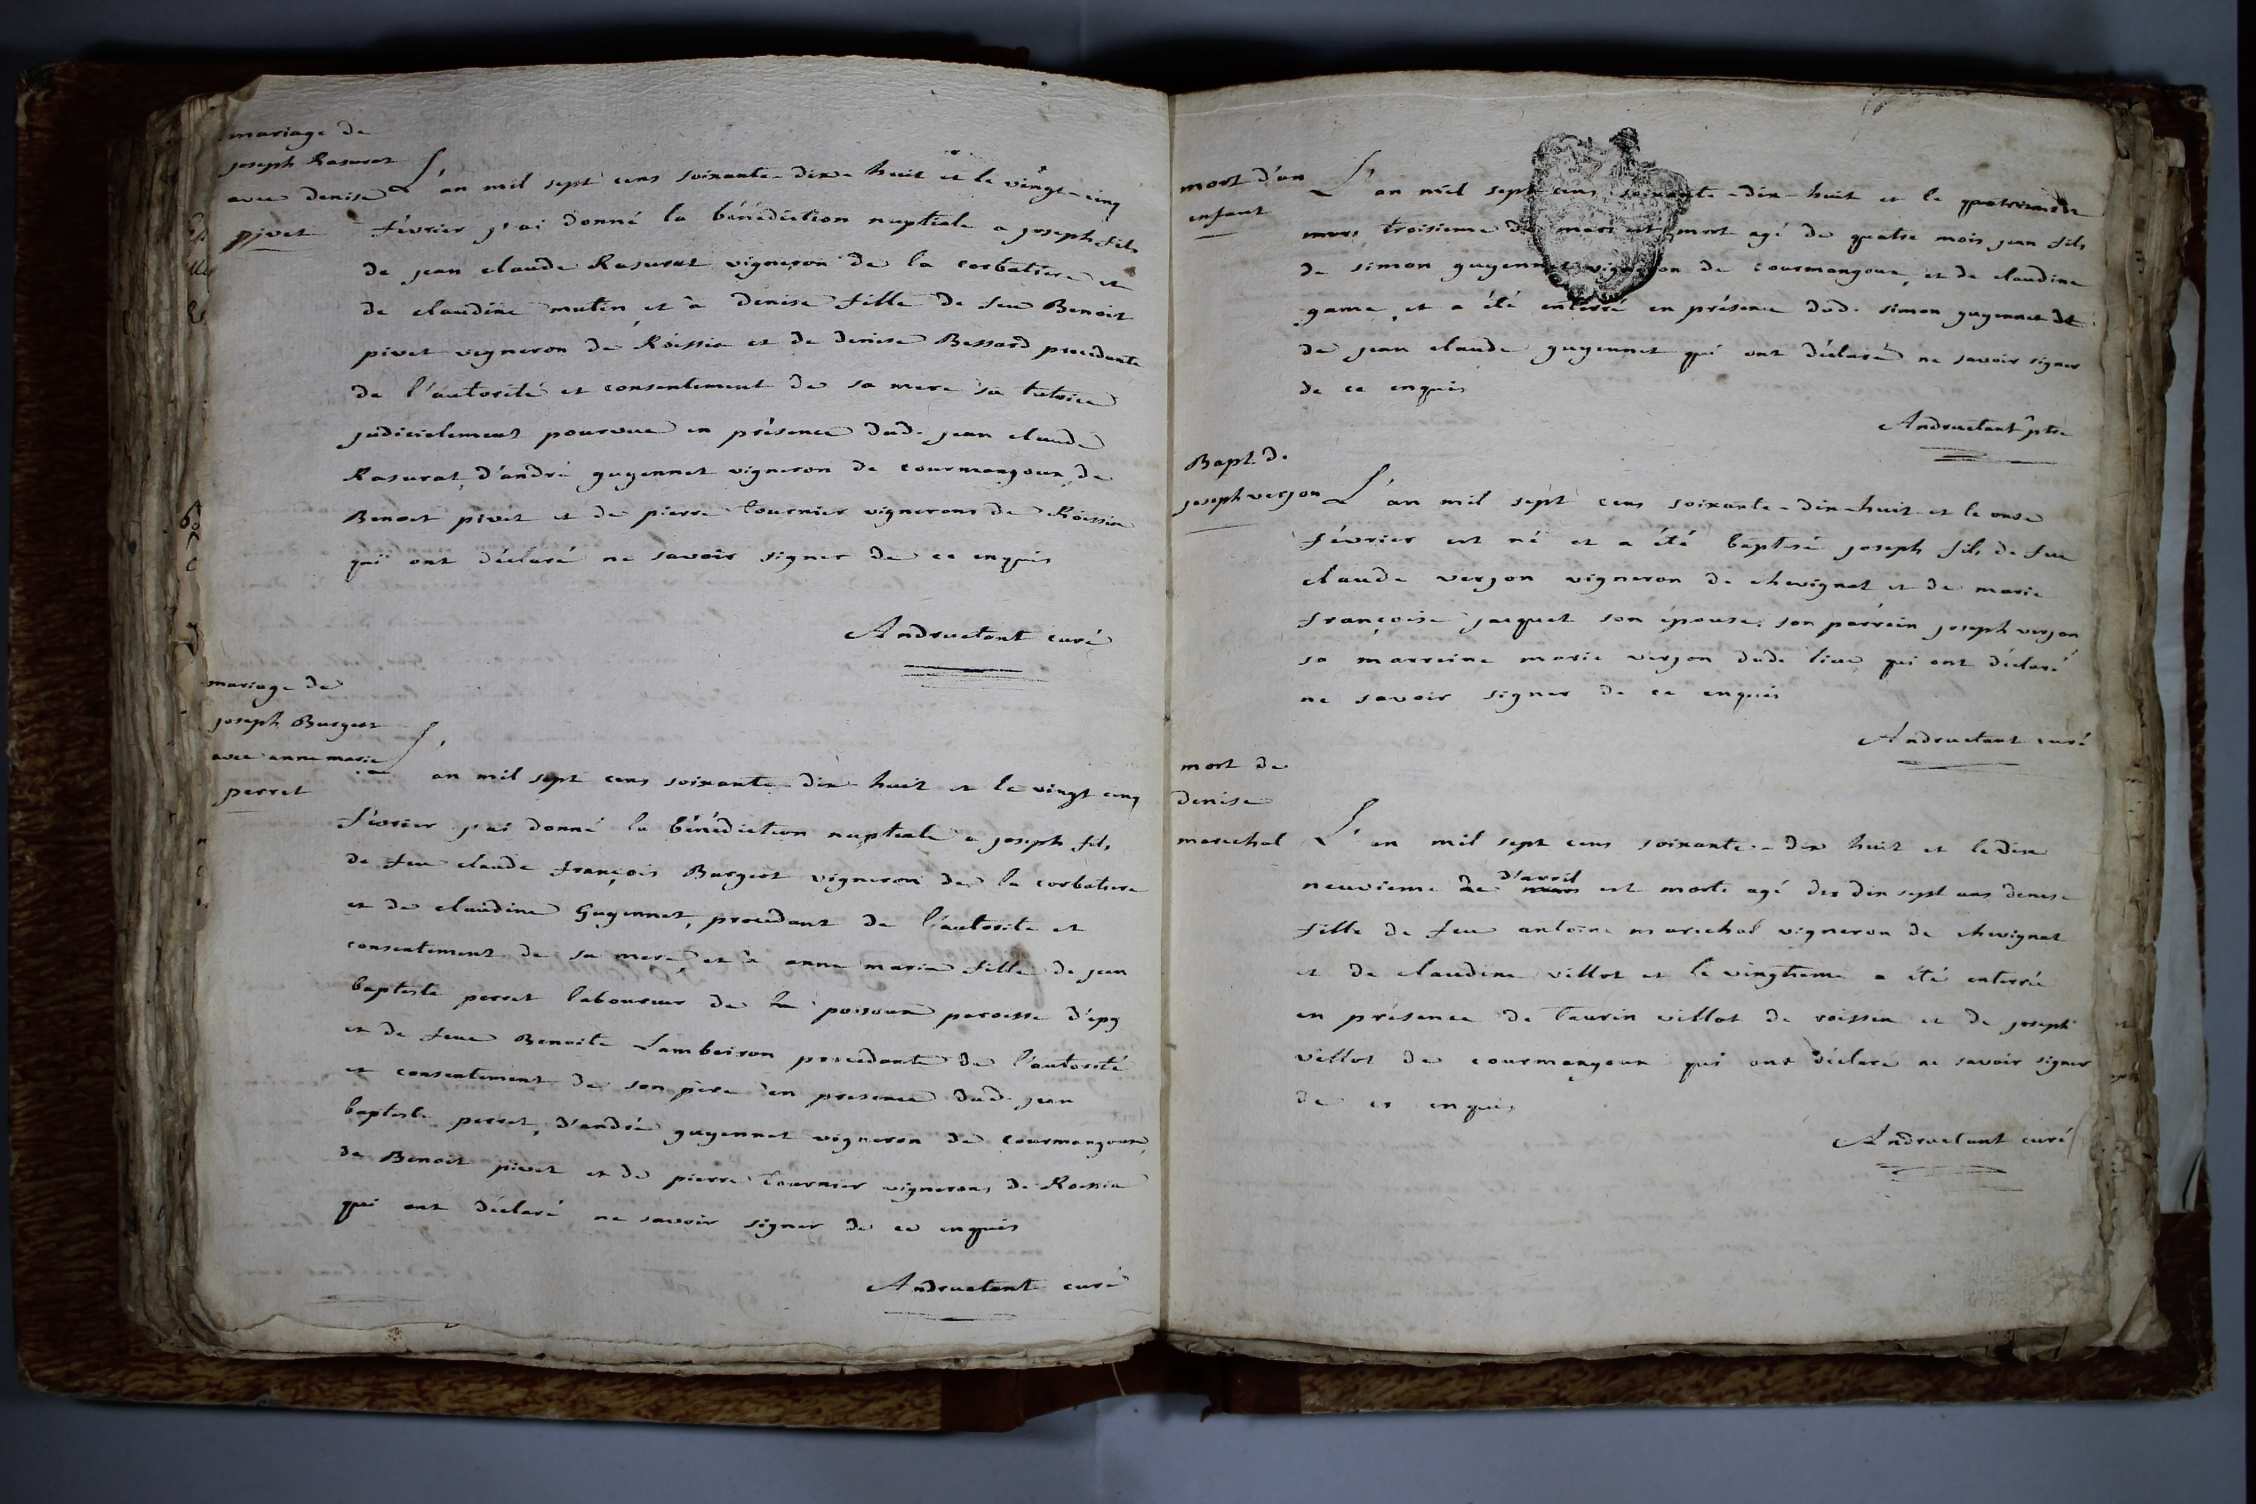 mariage de
joseph Rasurat
avec denise
pivet
L'an mil sept cens soixante-dix-huit et le vingt-cinq
février j'ai donné la bénédiction nuptiale a joseph fils
de jean claude Rasurat vigneron de la corbatiere et
de claudine mutin et à denise fille de feu Benoit
pivet vigneron de Roissia et de denise Bessard procedante
de l'autorité et consentement de sa mere sa tutrice
judicielement pourvue en présence dud. jean claude
Rasurat, d'andré guyennet vigneron de courmangoux, de
Benoit pivet et de pierre Tournier vignerons de Roissia
qui ont déclaré ne savoir signer de ce enquis
Andruetant curé
mariage de
joseph Burgert
avec anne marie
perret
L'an mil sept cens soixante dix huit et le vingt cinq
février j'ai donné la bénédiction nuptiale a joseph fils
de feu claude françois Burgert vigneron de la corbatiere
et de claudine Guyennet, procedant de l'autorité et
consentement de sa mere, et à anne marie fille de jean
baptiste perret laboureur de poisoux paroisse d'epy
et de feue Benoite Lamberson procedante de l'autorité
et consentement de son père en presence dud. jean
baptiste perret, d'andré guyennet vigneron de courmangoux,
de Benoit pivet et de pierre Tournier vignerons de Roissia
qui ont déclaré ne savoir signer de ce enquis
Andruetant curé
mort d'un
enfant
L'an mil sept cens soixante-dix-huit et le
mars troisieme de mars est mort agé de quatre mois jean fils
de simon guyennet vigneron de courmangoux, et de claudine
game, et a été enterré en présence dud. simon guyennet et
de jean claude guyennet qui ont déclaré ne savoir signer
de ce enquis
Andruetant ptre
Bapt. de
joseph verjon
L'an mil sept cens soixante-dix-huit et le onze
février est né et a été baptisé joseph fils de feu
claude verjon vigneron de chevignat et de marie
françoise jacquet son épouse. son parrein joseph verjon
sa marreine marie verjon dud. lieu qui ont déclaré
ne savoir signer de ce enquis
Andruetant curé
mort de
denise
marechal
L'an mil sept cens soixante-dix huit et le dix
neuvieme de mars d'avril est morte agé de dix sept ans denise
fille de feu antoine marechal vigneron de chevignat
et de claudine villot et le vingtieme a été enterrée
en présence de Taurin villot de roissia et de joseph
villot de courmangoux qui ont déclaré ne savoir signer
de ce enquis
Andruetant curé